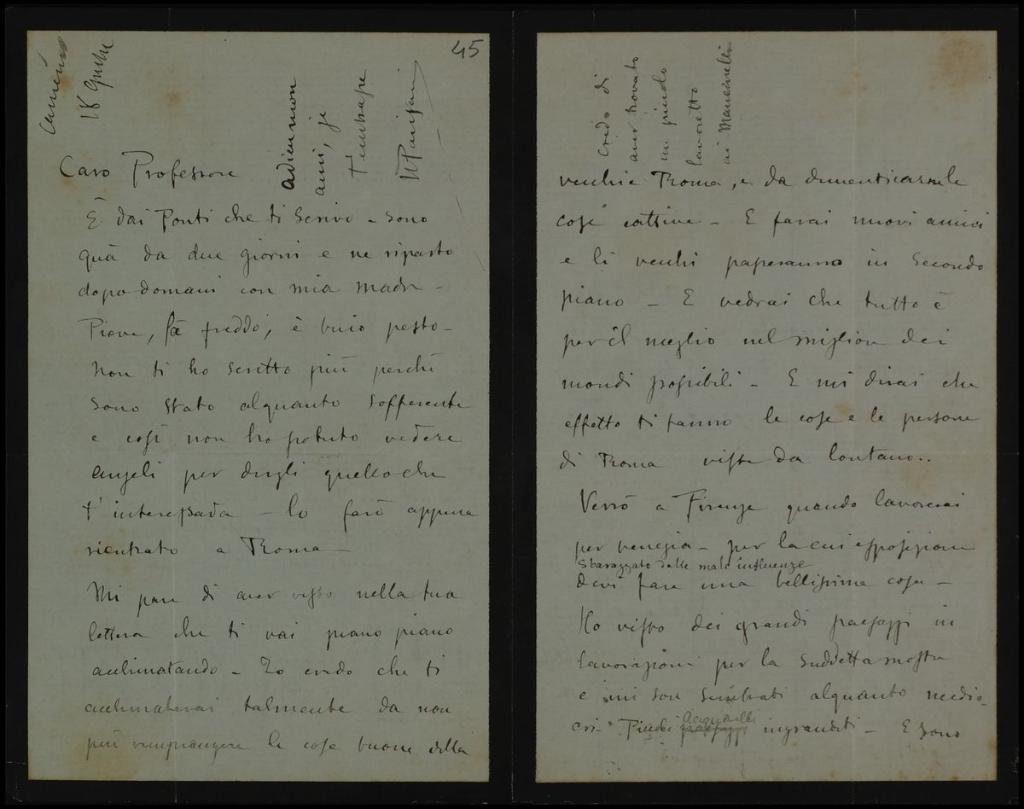 45
18
Caro Professore
È dai Ponti che ti scrivo - sono
quà da due giorni e ne riparto
dopo domani con mia madre -
Piove, fà freddo, è buio pesto -
Non ti ho scritto più perché
sono stato alquanto sofferente
e così non ho potuto vedere
Angeli per dirgli quello che
t'interessava - lo farò appena
rientrato a Roma -
Mi pare di aver visto nella tua
lettera che ti vai piano piano
acclimatando - Io credo che ti
acclimaterai talmente da non
più rimpiangere le cose buone della
adieu mon
ami, je
t'embrasse
Credo di
aver trovato
un piccolo
lavoretto
ai Mancinelli
vecchia Roma, e da dimenticarne le
cose cattive - E farai nuovi amici
e li vecchi passeranno in secondo
piano - E vedrai che tutto è
per il meglio nel migliore dei
mondi possibili - E mi dirai che
effetto ti fanno le cose e le persone
di Roma viste da lontano..
Verrò a Firenze quando lavorerai
per Venezia - per la cui esposizione
sbarazzato dalle male influenze
devi fare una bellissima cosa -
Ho visto dei grandi paesaggi in
lavorazione per la suddetta mostra
e mi son sembrati alquanto medio-
cri - Piccoli acquarelli ingranditi - E sono